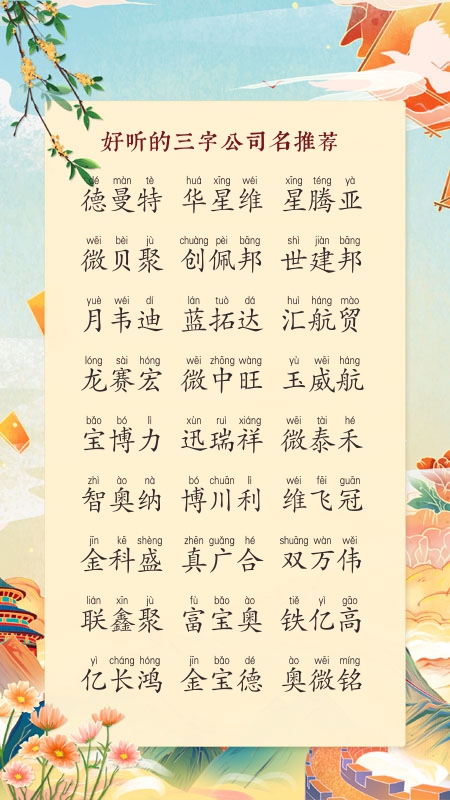 好听的三字公司名推荐
dé màn tè huá xīng wéi xīng téng yà
德曼特 华星维 星腾亚
wēi bèi jù chuàng pèi bāng shì jiàn bāng
微贝聚 创佩邦 世建邦
yuè wéi dí lán tuò dá huì háng mào
月韦迪 蓝拓达 汇航贸
lóng sài hóng wēi zhōng wàng yù wēi háng
龙赛宏 微中旺 玉威航
bǎo bó lì xùn ruì xiáng wēi tài hé
宝博力 迅瑞祥 微泰禾
zhì ào nà bó chuān lì wéi fēi guān
智奥纳 博川利 维飞冠
jīn kē shèng zhēn guǎng hé shuāng wàn wěi
金科盛 真广合 双万伟
lián xīn jù fù bǎo ào tiě yì gāo
联鑫聚 富宝奥 铁亿高
yì cháng hóng jīn bǎo dé ào wēi míng
亿长鸿 金宝德 奥微铭